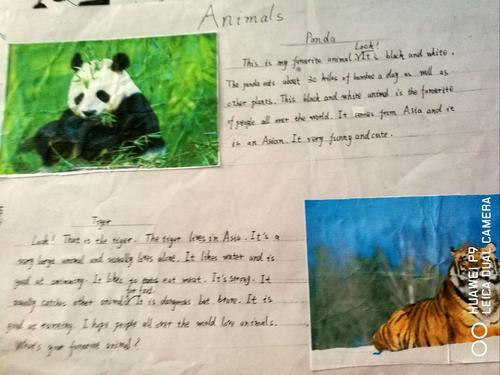 Animals
Panda
This is my favorite animal. Look! It is black and white.
The panda eats about 30 kilos of bamboo a day as well as
other plants. This black and white animal is the favorite
of people all over the world. It comes from Asia and it
is an Asian. It very funny and cute.
Tiger
Look! That is the tiger. The tiger lives in Asia. It's a
very large animal and usually lives alone. It likes water and is
good at swimming. It likes to eat meat. It's strong. It
usually catches other animals for food. It is dangerous but brave. It is
good at running. I hope people all over the world love animals.
What's your favorite animal?
HUAWEI P9
LEICA DUAL CAMERA